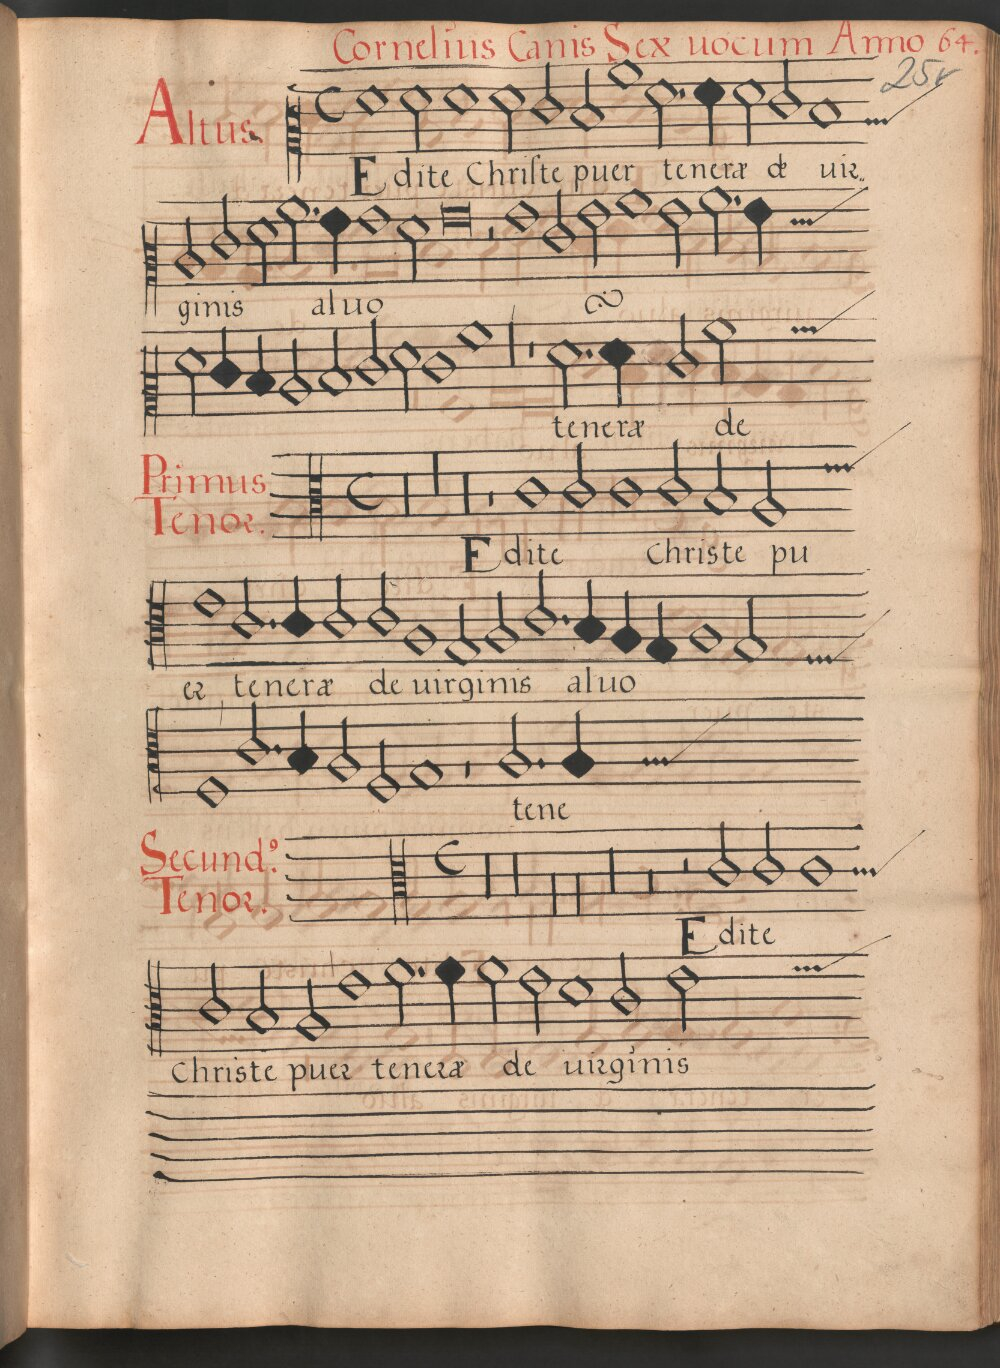 Cornelius Canis Sex uocum Anno 64.
25r
Altus.
Edite Christe puer teneræ de uir..
ginis aluo
teneræ de
Primus
Tenor.
Edite Christe pu
er teneræ de uirginis aluo
tene
Secundꝰ.
Tenor.
Edite
Christe puer teneræ de uirginis